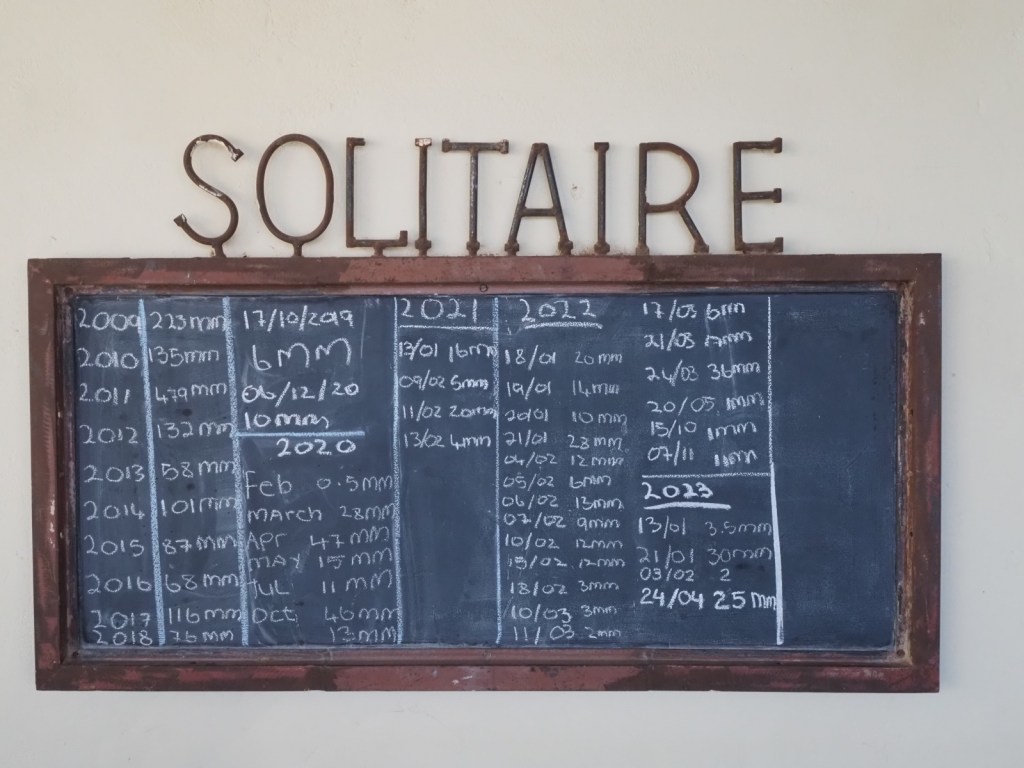 SOLITAIRE
2009 223mm
2010 135mm
2011 479mm
2012 132mm
2013 58mm
2014 101mm
2015 87mm
2016 68mm
2017 116mm
2018 76mm
17/10/2019
6MM
06/12/20
10mm
2020
Feb 0.5MM
MARCH 28MM
Apr 47MM
MAY 15MM
JUL 11MM
Oct 46MM
13MM
2021
13/01 16mm
09/02 5mm
11/02 20mm
13/02 4mm
2022
18/01 20mm
19/01 14mm
20/01 10mm
21/01 28mm
04/02 12mm
05/02 6mm
06/02 13mm
07/02 9mm
10/02 12mm
15/02 12mm
18/02 3mm
10/03 3mm
11/03 2mm
17/03 6mm
21/03
24/03 36mm
20/05 1mm
15/10 1mm
07/11 11mm
2023
13/01 3.5mm
21/01 30mm
03/02 2
24/04 25mm